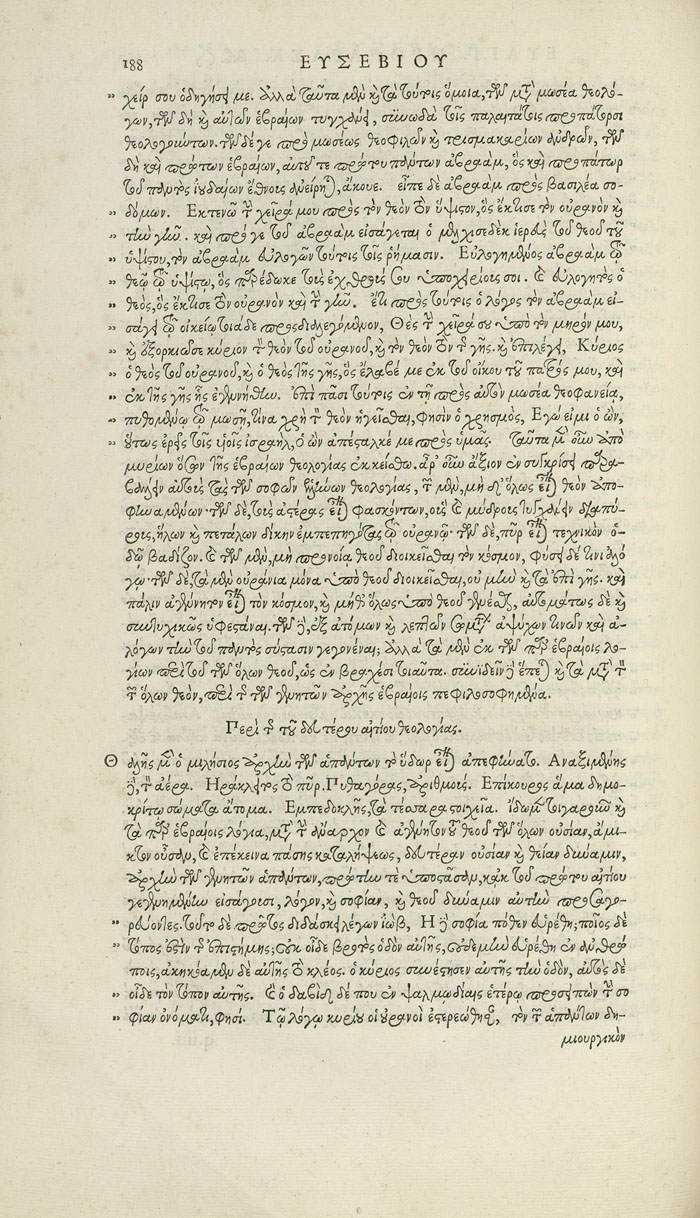 188 ΕΥΣΕΒΙΟΥ
" χείρ σου ὁδηγήσει με. ἀλλὰ ταῦτα μὲν καὶ τὰ τούτοις ὅμοια, τῶν μετὰ μωσέα θεολό-
γων, τῶν δὴ καὶ αὐτῶν ἑβραίων τυγχάνει, συνῳδὰ τοῖς παλαιτάτοις προπάτορσι
θεολογούντων. τῶν δέ γε πρὸ μωσέως θεοφιλῶν καὶ τρισμακαρίων ἀνδρῶν, τῶν
δὴ καὶ πρώτων ἑβραίων, αὐτοῦ τε πρώτου πάντων ἀβραὰμ, ὃς καὶ προπάτωρ
τοῦ παντὸς ἰουδαίων ἔθνους ἀνείρηται, ἄκουε. εἶπε δὲ ἀβραὰμ πρὸς βασιλέα σο-
" δόμων. Εκτενῶ τὴν χεῖρά μου πρὸς τὸν θεὸν τὸν ὕψιστον, ὃς ἔκτισε τὸν οὐρανὸν καὶ
" τὴν γῆν. καὶ πρό γε τοῦ ἀβραὰμ εἰσάγεται ὁ μελχισεδὲκ ἱερεὺς τοῦ θεοῦ τοῦ
" ὑψίστου, τὸν ἀβραὰμ εὐλογῶν τούτοις τοῖς ῥήμασιν. Εὐλογημένος ἀβραὰμ τῷ
" θεῷ τῷ ὑψίστῳ, ὃς παρέδωκε τοὺς ἐχθρούς σου ὑποχειρίους σοι. καὶ εὐλογητὸς ὁ
" θεὸς, ὃς ἔκτισε τὸν οὐρανὸν καὶ τὴν γῆν. ἔτι πρὸς τούτοις ὁ λόγος τὸν ἀβραὰμ εἰ-
" σάγει τῷ οἰκείῳ τοιάδε προσδιαλεγόμενον, Θὲς τὴν χεῖρά σου ὑπὸ τὸν μηρόν μου,
" καὶ ἐξορκιῶ σε κύριον τὸν θεὸν τοῦ οὐρανοῦ, καὶ τὸν θεὸν τὸν τῆς γῆς. καὶ ἐπιλέγει, Κύριος
" ὁ θεὸς τοῦ οὐρανοῦ, καὶ ὁ θεὸς τῆς γῆς, ὃς ἔλαβέ με ἐκ τοῦ οἴκου τοῦ πατρός μου, καὶ
" ἐκ τῆς γῆς ἧς ἐγεννήθην. ἐπὶ πᾶσι τούτοις ἐν τῇ πρὸς αὐτὸν μωσέα θεοφανείᾳ,
" πυθομένῳ τῷ μωσῇ, τίνα χρὴ τὸν θεὸν ἡγεῖσθαι, φησὶν ὁ χρησμὸς, Εγώ εἰμι ὁ ὤν,
" οὕτως ἐρεῖς τοῖς υἱοῖς ἰσραὴλ, ὁ ὢν ἀπέσταλκέ με πρὸς ὑμᾶς. ταῦτα μὲν οὖν ἀπὸ
μυρίων ὅσων τῆς ἑβραίων θεολογίας ἐκκείσθω. ἆρ' οὖν ἄξιον ἐν συγκρίσει παρα-
βαλεῖν αὐτοῖς τὰς τῶν σοφῶν ἑλλήνων θεολογίας, τῶν μὲν, μὴ δ' ὅλως εἶναι θεὸν ἀπο-
φηναμένων· τῶν δὲ, τοὺς ἀστέρας εἶναι φασκόντων, οὓς καὶ μύδρους τυγχάνειν διαπύ-
ρους, ἥλων καὶ πετάλων δίκην ἐμπεπηγότας τῷ οὐρανῷ· τῶν δὲ, πῦρ εἶναι τεχνικὸν ὁ-
δῷ βαδίζον. καὶ τῶν μὲν, μὴ προνοίᾳ θεοῦ διοικεῖσθαι τὸν κόσμον, φύσει δέ τινι ἀλό-
γῳ· τῶν δὲ, τὰ μὲν οὐράνια μόνα ὑπὸ θεοῦ διοικεῖσθαι, οὐ μὴν καὶ τὰ ἐπὶ γῆς. καὶ
πάλιν ἀγέννητον εἶναι τὸν κόσμον, καὶ μηδ' ὅλως ὑπὸ θεοῦ γενέσθαι, αὐτομάτως δὲ καὶ
συντυχικῶς ὑφεστάναι. τῶν δὲ, ἐξ ἀτόμων καὶ λεπτῶν σωμάτων ἀψύχων τινῶν καὶ ἀ-
λόγων τὴν τοῦ παντὸς σύστασιν γεγονέναι; ἀλλὰ τὰ μὲν ἐκ τῶν παρ' ἑβραίοις λο-
γίων περὶ τοῦ τῶν ὅλων θεοῦ, ὡς ἐν βραχέσι τοιαῦτα. συνιδεῖν δὲ ἕπεται καὶ τὰ μετὰ τὸν
τῶν ὅλων θεὸν, περὶ τῆς τῶν γενητῶν ἀρχῆς ἑβραίοις πεφιλοσοφημένα.
Περὶ τῆς τοῦ δευτέρου αἰτίου θεολογίας.
Θαλῆς μὲν ὁ μιλήσιος ἀρχὴν τῶν ἁπάντων τὸ ὕδωρ εἶναι ἀπεφήνατο. Αναξιμένης
δὲ, τὸν ἀέρα. Ηράκλειτος τὸ πῦρ. Πυθαγόρας, ἀριθμούς. Επίκουρος ἅμα δημο-
κρίτῳ σώματα ἄτομα. Εμπεδοκλῆς, τὰ τέσσαρα στοιχεῖα. ἴδωμεν τοιγαροῦν καὶ
τὰ παρ' ἑβραίοις λόγια, μετὰ τὴν ἄναρχον καὶ ἀγένητον τοῦ θεοῦ τῶν ὅλων οὐσίαν, ἄμι-
κτον οὖσαν, καὶ ἐπέκεινα πάσης καταλήψεως, δευτέραν οὐσίαν καὶ θείαν δύναμιν,
ἀρχὴν τῶν γενητῶν ἁπάντων, πρώτην τε ὑποστᾶσαν, κἀκ τοῦ πρώτου αἰτίου
γεγενημένην εἰσάγουσι, λόγον, καὶ σοφίαν, καὶ θεοῦ δύναμιν αὐτὴν προσαγο-
" ρεύοντες. τοῦτο δὲ πρῶτος διδάσκει λέγων ἰὼβ, Η δὲ σοφία πόθεν εὑρέθη; ποῖος δὲ
" τόπος ἐστὶν τῆς ἐπιστήμης; οὐκ οἶδε βροτὸς ὁδὸν αὐτῆς, οὐδὲ μὴν εὑρέθη ἐν ἀνθρώ
ποις, ἀκηκόαμεν δὲ αὐτῆς τὸ κλέος. ὁ κύριος συνέστησεν αὐτῆς τὴν ὁδὸν, αὐτὸς δὲ
" οἶδε τὸν τόπον αὐτῆς. καὶ ὁ δαβὶδ δέ που ἐν ψαλμῳδίαις ἑτέρῳ προσειπὼν τὴν σο
" φίαν ὀνόματι, φησί. Τῷ λόγῳ κυρίου οἱ οὐρανοὶ ἐστερεώθησαν, τὸν τῶν ἁπάντων δη-
μιουργικὸν